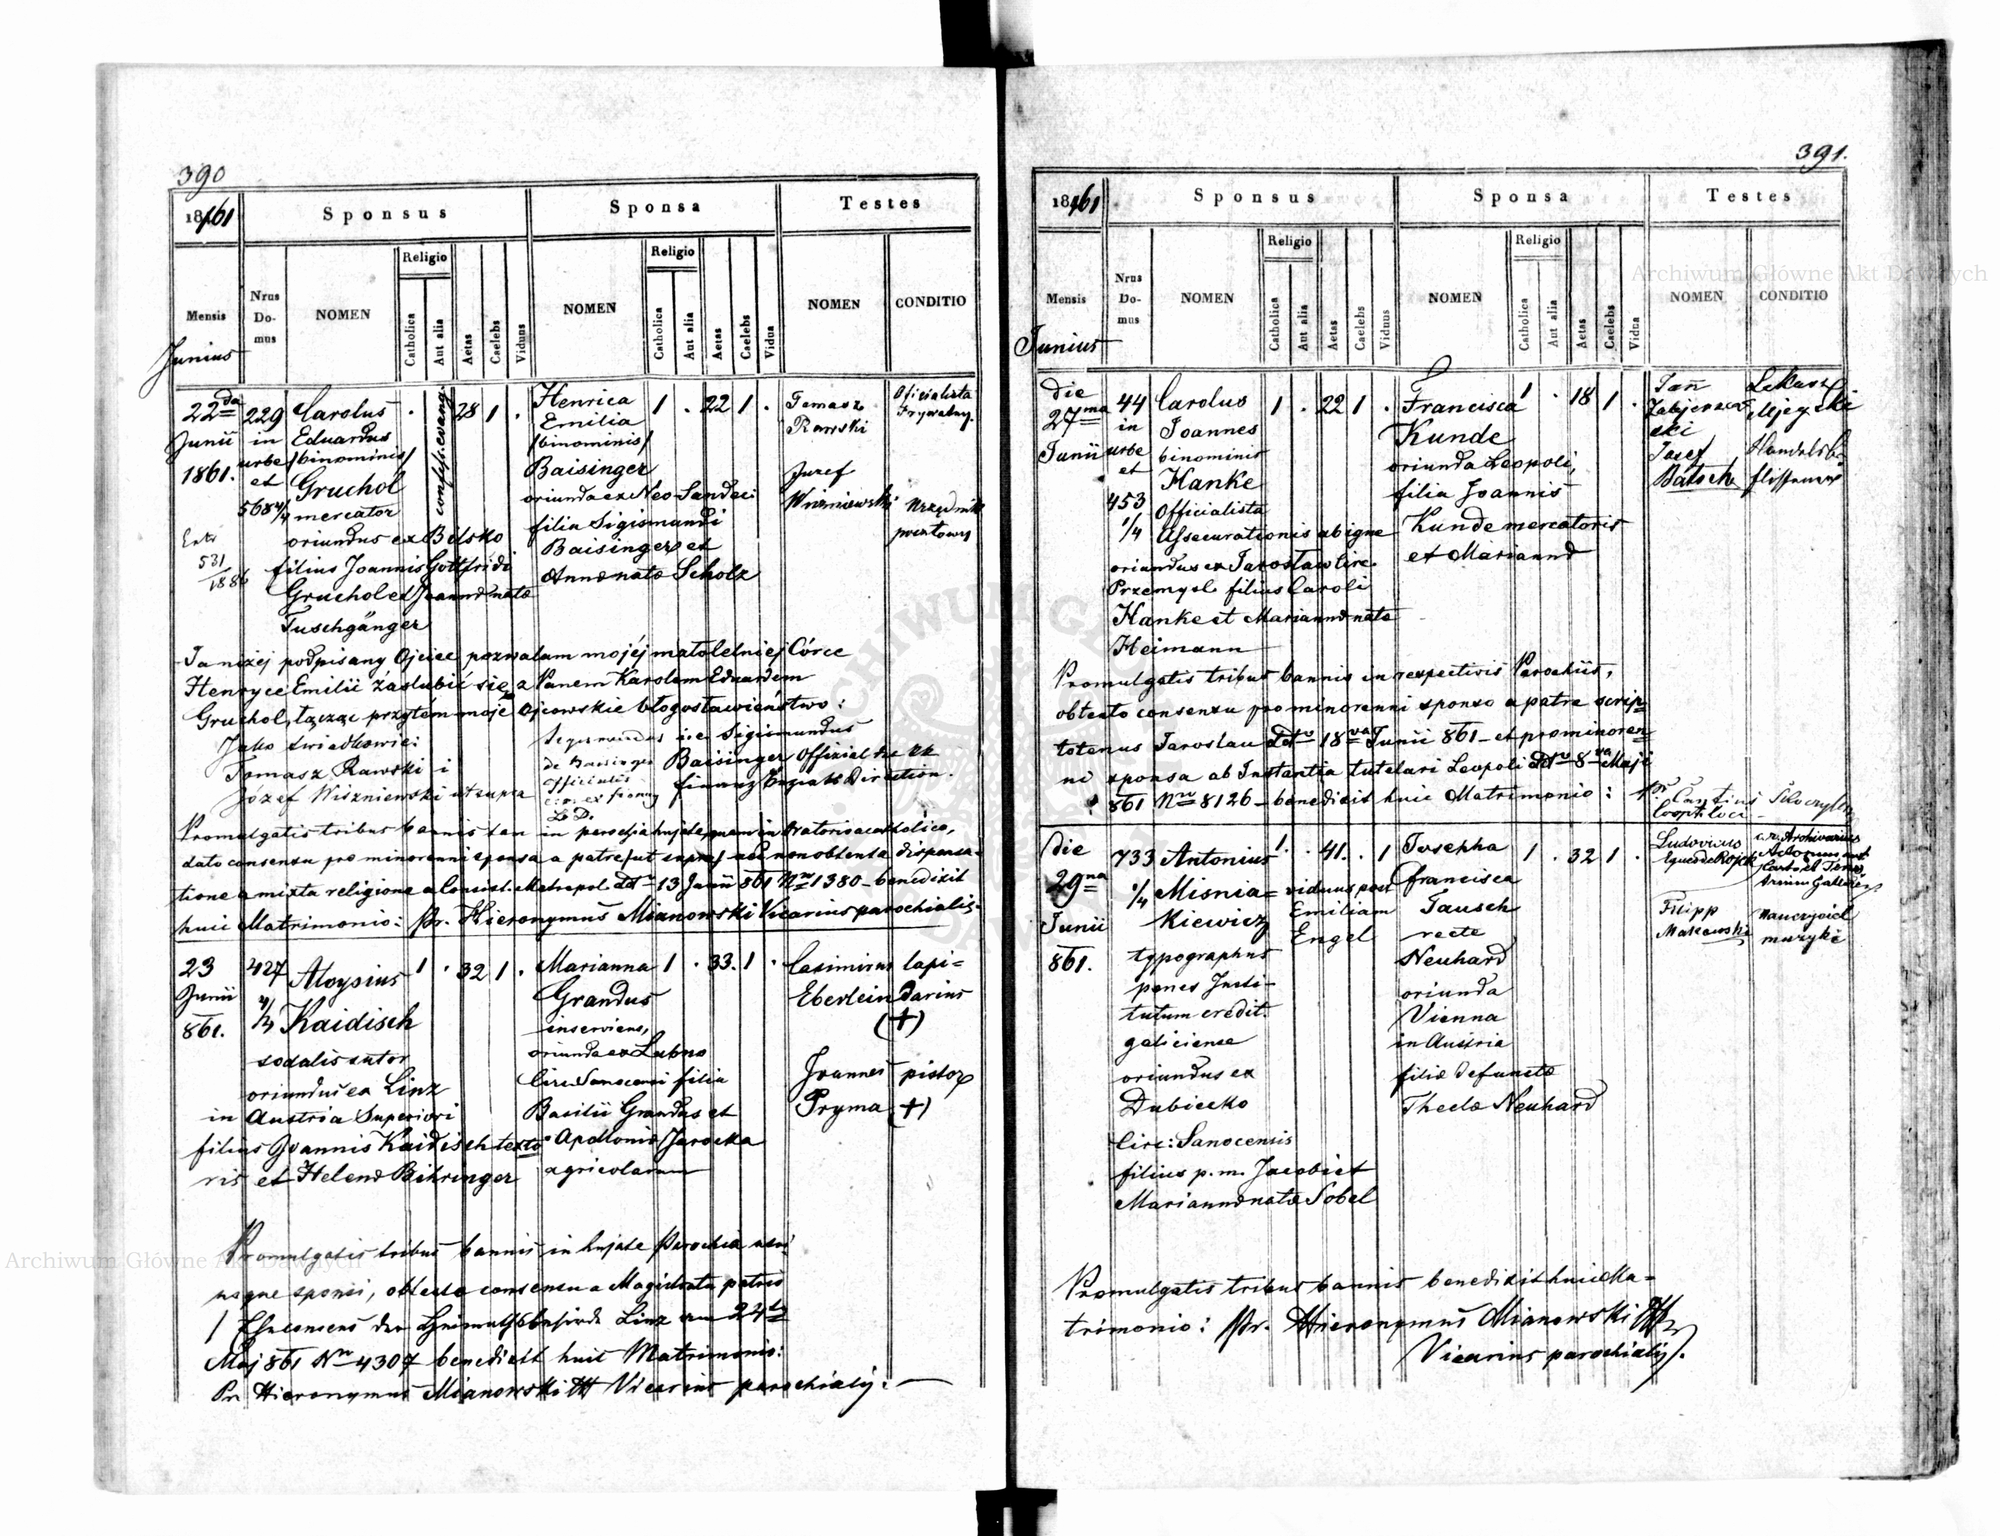 390
1861
Sponsus
Sponsa
Testes
Mensis
Nrus Do-mus
NOMEN
Religio
Catholica
Aut alia
Aetas
Caelebs
Viduus
NOMEN
Religio
Catholica
Aut alia
Aetas
Caelebs
Vidua
NOMEN
CONDITIO
Junius
22da
Junii
1861.
229
in
urbe
et
568 4/4
531
/886
Carolus
Eduardus
/binominis/
Gruchol
mercator
oriundus ex Bilsko
filius Joannis Gottfridi
Gruchol et Joannae natae
Tuschgänger
28 1 .
Henrica
Emilia
/binominis/
Baisinger
oriunda ex Neo-Sandec
filia Sigismundi
Baisinger et
Annae natae Scholz
1 . 22 1 .
Tomasz
Rawski
Oficialista
Prywatny.
Juzef
Wiszniewski
Urzędnik
powiatowy
Ja niżej podpisany Ojciec pozwalam mojéj małoletniej Córce
Henryce Emilii zaslubić się z Panem Karolem Eduardem
Gruchol, łącząc przytem moje ojcowskie błogosławieństwo:
Jako świadkowie:
Tomasz Rawski i
Józef Wiszniewski ut supra
Sigismundus
Baisinger Offizial der kk
finanz Bezirks Direction.
Promulgatis tribus bannis tam in parochia hujate, quam in Oratorio acatholico,
dato consensu pro minorenni sponsa a patre /ut supra/ nec non obtenta dispensa-
tione a mixta religione a Consist. Metropol. ddto 13 Junii 861 Nro 1380 - benedixit
huic Matrimonio: Pr. Hieronymus Mianowski Vicarius parochialis.
23
Junii
861.
427
4/4
Aloysius
Kaidisch
sodalis sutor
oriundus ex Linz
in Austria Superiori
filius Joannis Kaidisch texto-
ris et Helenae Bihringer
1 . 32 1 .
Marianna
Grandus
inserviens,
oriunda ex Lubno
Circ. Sanocensi filia
Basilii Grandus et
Apolloniae Jarocka
agricolarum
1 . 33. 1 .
Casimirus
Eberlein
lapi=
darius
(+)
Joannes
Pryma
pistor
(+)
Promulgatis tribus bannis in hujate Parochia utri
usque sponsi, obtento consensu a Magistratu patrio
/ Eheconsens der Heimathsbehörde Linz vom 24t
Maj 861 Nro 4307 benedixit huic Matrimonio:
Pr Hieronymus Mianowski Vicarius parochialis.
391.
1861
Sponsus
Sponsa
Testes
Mensis
Nrus Do-mus
NOMEN
Religio
Catholica
Aut alia
Aetas
Caelebs
Viduus
NOMEN
Religio
Catholica
Aut alia
Aetas
Caelebs
Vidua
NOMEN
CONDITIO
Junius
die
27ma
Junii
44
in
urbe
et
453
1/4
Carolus
Joannes
binominis
Hanke
Officialista
Assecurationis ab igne
oriundus ex Jaroslaw circ.
Przemysl. filius Caroli
Hanke et Mariannae natae
Heimann
1 . 22 1 .
Francisca
Kunde
oriunda Leopoli,
filia Joannis
Kunde mercatoris
et Mariannae
1 . 18 1 .
Jan
Josef
Batsch
Promulgatis tribus bannis in respectivis Parochiis,
obtento consensu pro minorenni sponso a patre scrip-
totenus Jaroslau ddto 18va Junii 861 - et pro minoren-
ni sponsa ab Instantia tutelari Leopoli ddto 8va Maji
861 Nro 8126 - benedixit huic Matrimonio:
Coop. loci
die
29na
Junii
861.
733
1/4
Antonius
Misnia=
kiewicz
typographus
penes Insti-
tutum credit.
galiciense
oriundus ex
Dubiecko
Circ: Sanocensis
filius p.m. Jacobi et
Mariannae natae Sobel
1 . 41. . 1
viduus post
Emiliam
Engel
Josepha
Francisca
Tausch
recte
Neuhard
oriunda
Vienna
in Austria
filia defunctae
Theclae Neuhard
1 . 32 1 .
Ludovicus
c.r. Archivarius
Filipp
Makowski
nauczyciel
muzyki
Promulgatis tribus bannis benedixit huic Ma=
trimonio: Pr. Hieronymus Mianowski
Vicarius parochialis.
Archiwum Główne Akt Dawnych
Archiwum Główne Akt Dawnych